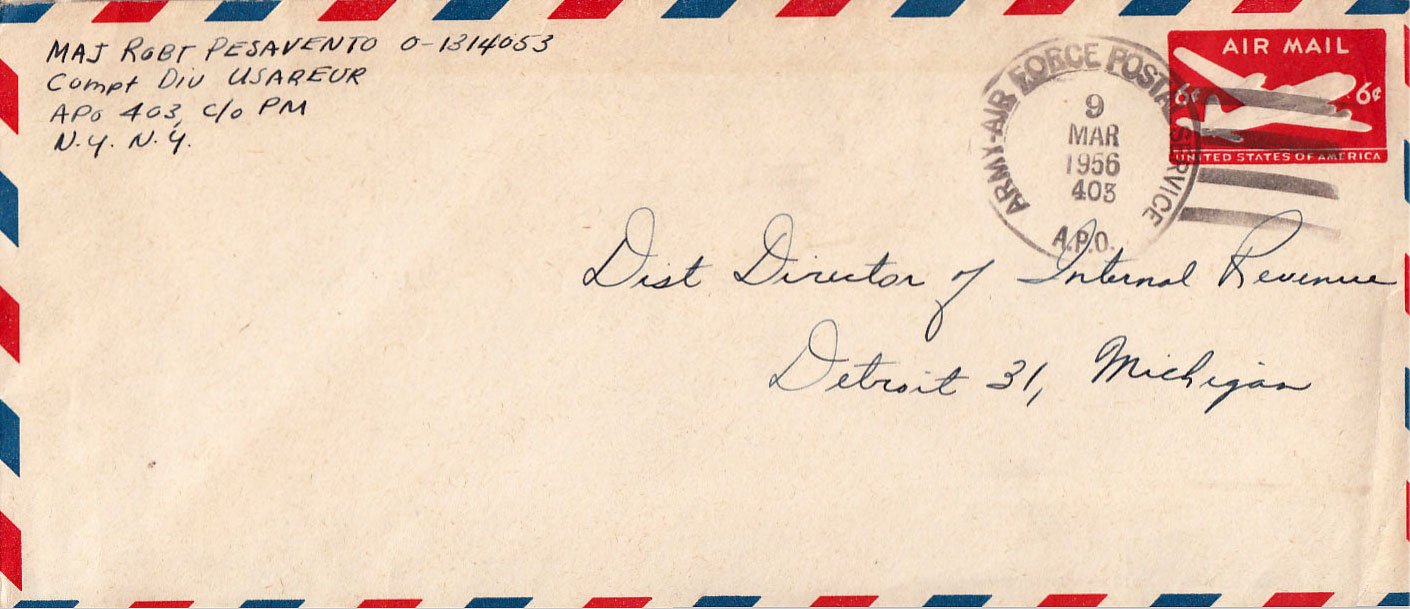 MAJ ROBT PESAVENTO O-1314053
Compt Div USAREUR
APO 403, c/o PM
N.Y. N.Y.
ARMY-AIR FORCE POSTAL SERVICE
9
MAR
1956
403
A.P.O.
AIR MAIL
6¢ 6¢
UNITED STATES OF AMERICA
Dist Director of Internal Revenue
Detroit 31, Michigan